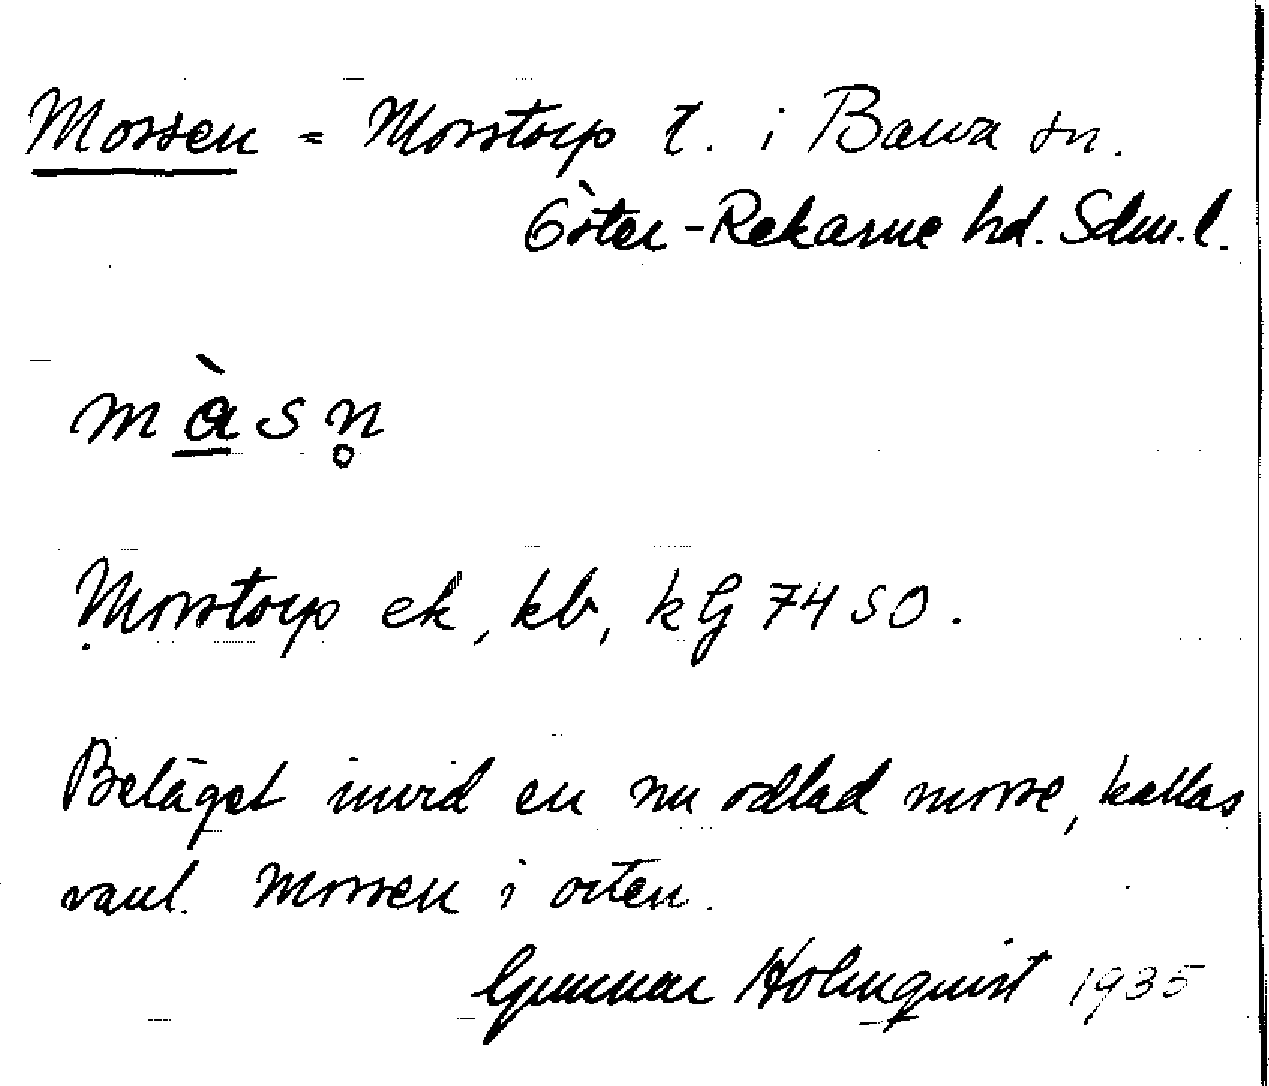 Mossen = Mosstorp t. i Barva sn.
Öster-Rekarne hd. Sdm.l.
màsn̥
Mosstorp ek, kb, kG 74 SO.
Beläget invid en nu odlad mosse, kallas
vanl. Mossen i orten.
Gunnar Holmquist 1935